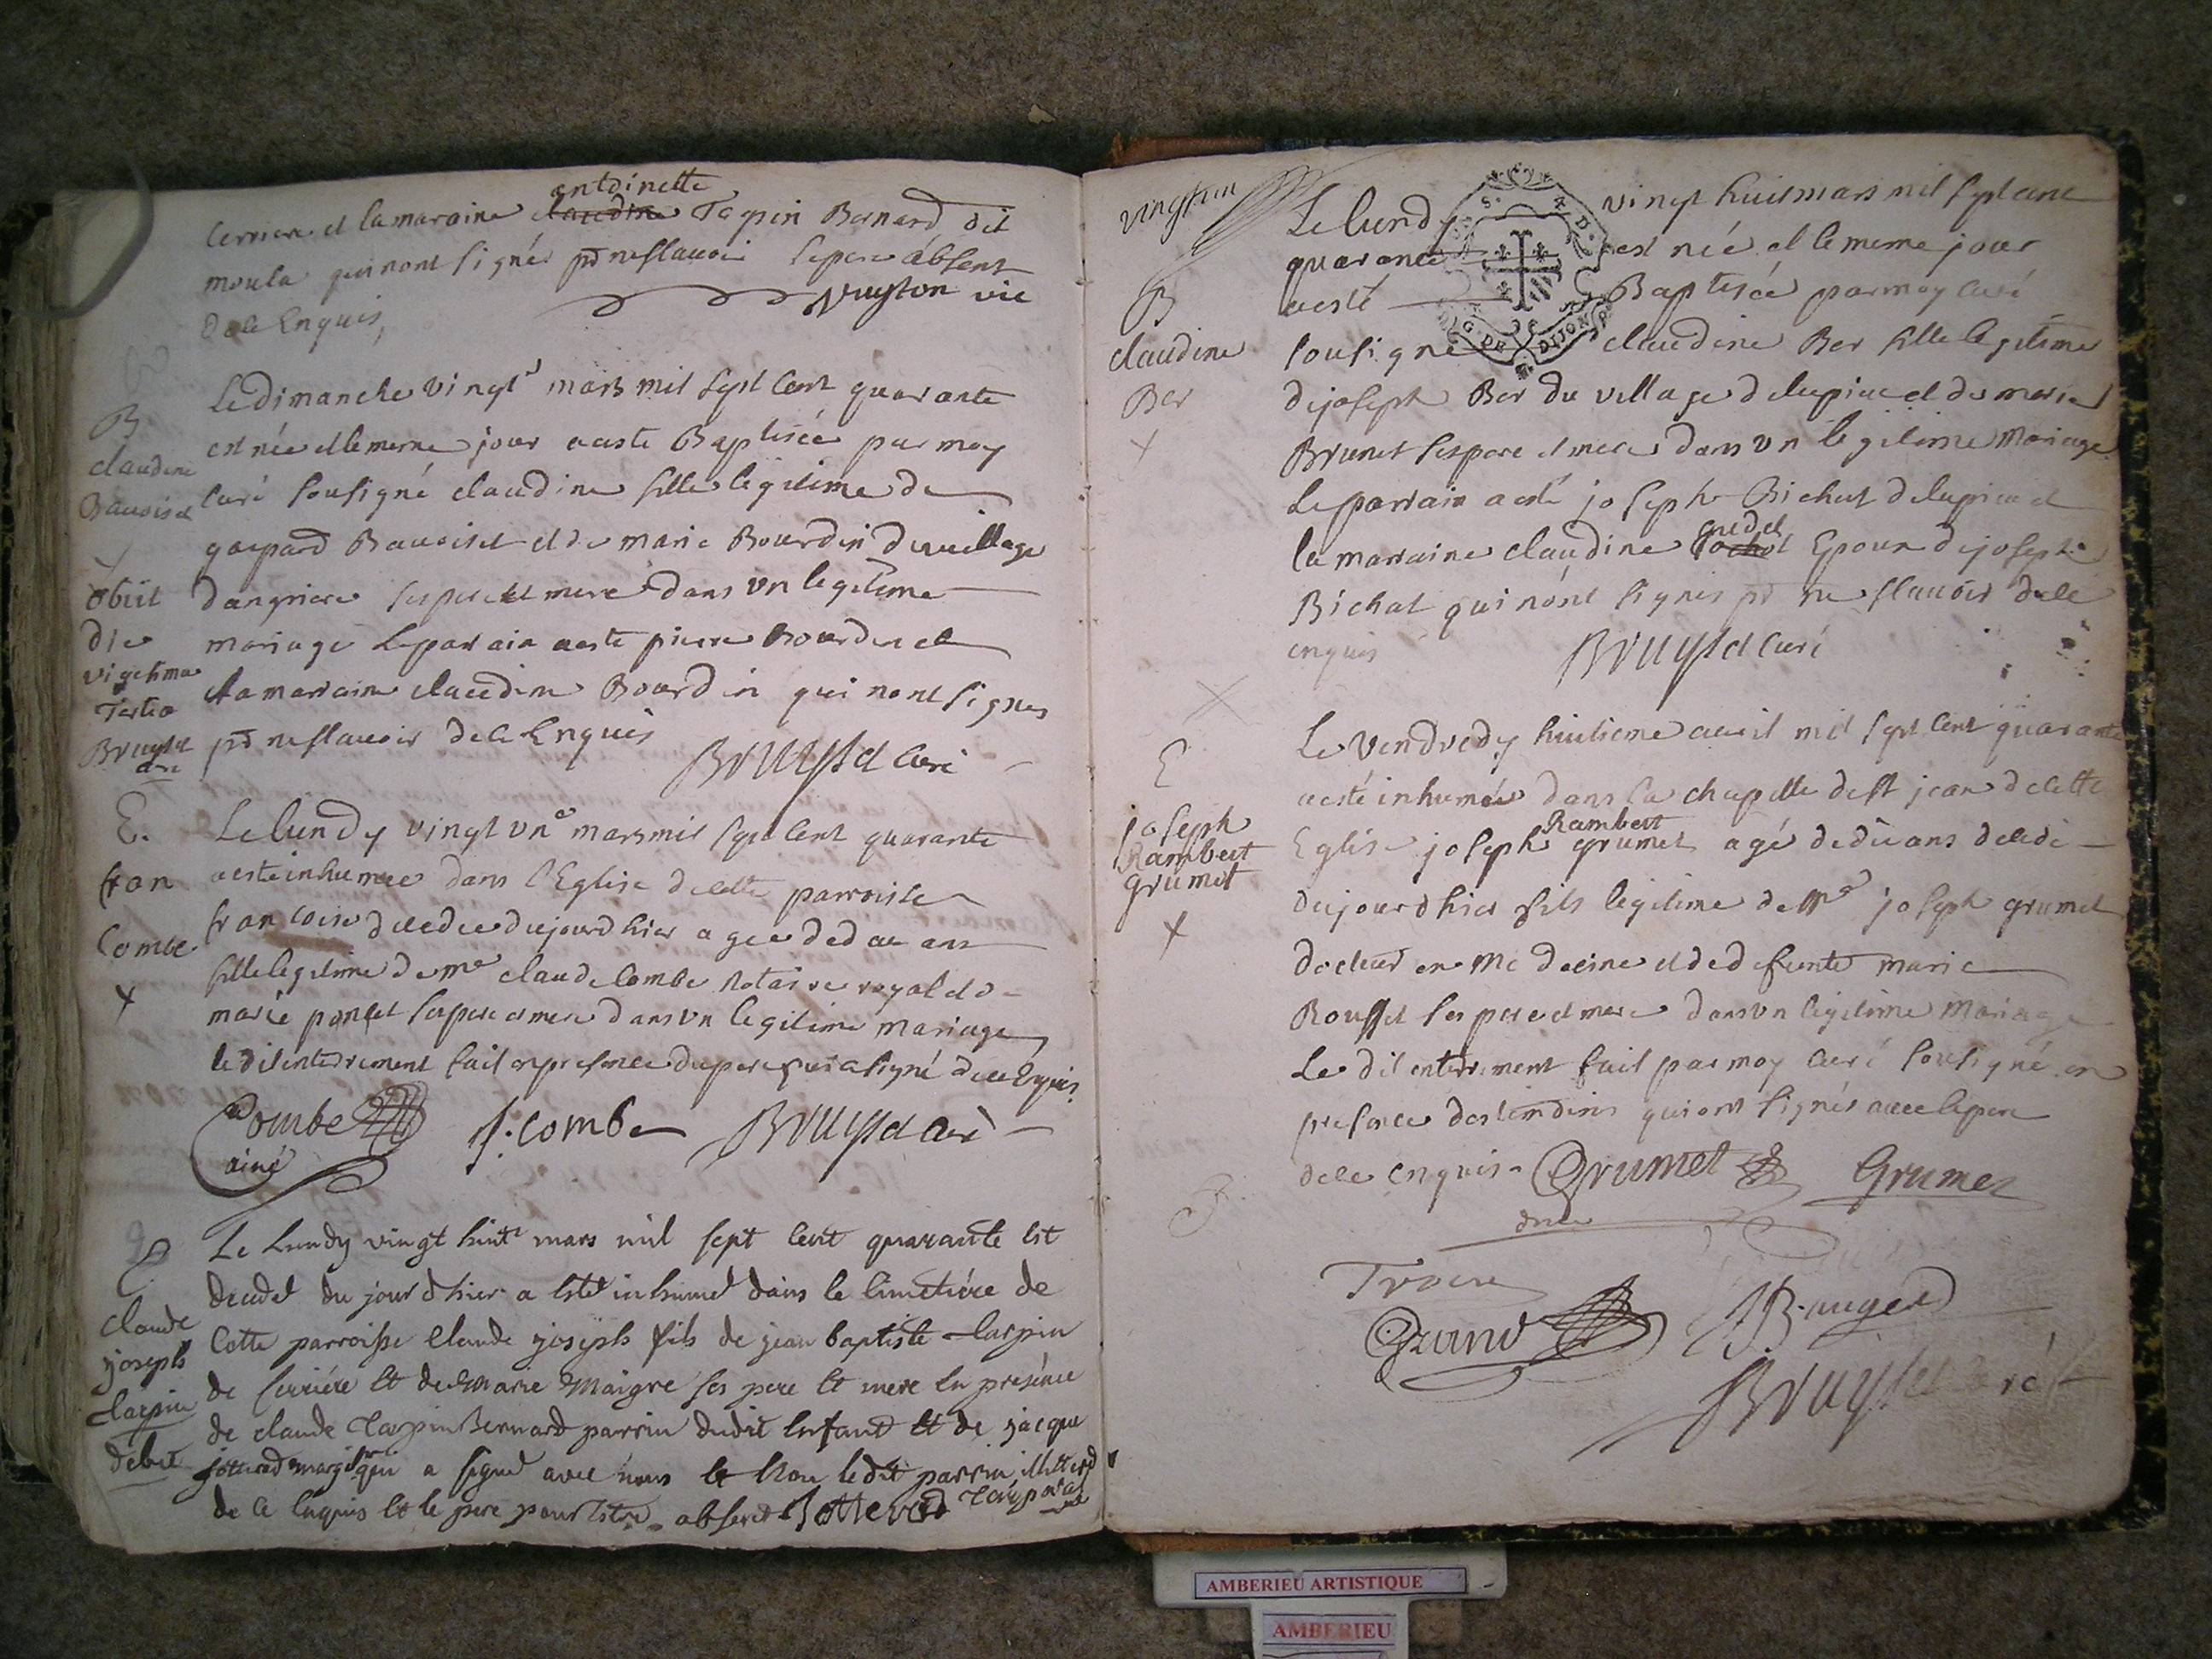 antoinette
cerriere et la maraine claudine Tarpin Bernard dit
moula qui nont signés pr ne scavoir le pere absent
de ce Enquis,
vic
B
claudine
Bauoiset
Le dimanche vingt mars mil sept cent quarante
est née et le meme jour a esté Baptisée par moy
curé sousigné claudine fille legitime de
gaspard Bauoiset et de marie Bourdin du village
obiit
die
vigesima
Tertia
Bruyset
curé
dangriere ses pere et mere dans vn legitime
mariage Le parain a esté pierre Bourdin et
la marraine claudine Bourdin qui nont signés
pr ne scavoir de ce Enquis
Bruyset curé
E.
fran
Combe.
Le lundy vingt vne mars mil sept cent quarante
a esté inhumée dans l'Eglise de cette parroisse
francoise decedée du jourd hier agée de deux ans
fille legitime de me claude Combe notaire royal et de
marie poncet ses pere et mere dans vn legitime mariage
le dit enterrement fait en presence du pere qui a signé de ce Enquis
Combe
ainé
J. Combe
Bruyset curé
E
claude
joseph
tarpin
debit
Le Lundy vingt huit mars mil sept cent quarante Est
decedé du jour d hier a Esté inhumé dans le Cimetiére de
Cette parroisse Claude joseph fils de jean baptiste tarpin
de serriére Et de Marie Maigre ses pere Et mere En presénce
de claude Tarpin Bernard parrin dudit Enfant Et de jacque
jotterad margilr qui a signé avec nous Et Non ledit parrin illitteré
de ce Enquis Et le pere pour Estre absent Jotterad
vingt un
B
claudine
Ber
Le lundy vingt huit mars mil sept cent
quarante est née et le meme jour
a esté Baptisée par moy curé
sousigné claudine Ber fille legitime
G. DE DIJON
de joseph Ber du village de lupieu et de marie
Brunet ses pere et mere dans vn legitime Mariage
Le parrain a esté joseph Bichat de lupieu et
la marraine claudine gudet Epouse de joseph
Bichat qui nont signés pr ne scavoir de ce
enquis
Bruyset curé
E
joseph
Rambert
grumet
Le Vendredy huitieme avril mil sept cent quarante
a esté inhumée dans la chapelle de st jean de cette
Rambert
Eglise joseph grumet agé de dix ans decedé
du jourd hier fils legitime de mre joseph grumet
docteur en Medecine et de defunte marie
Rousset ses pere et mere dans vn legitime Mariage
Le dit enterrement fait par moy curé sousigné en
presence des temoins qui ont signés avec le pere
de ce enquis. Grumet Grumet
Grand
Bruyset curé
AMBERIEU ARTISTIQUE
AMBERIEU